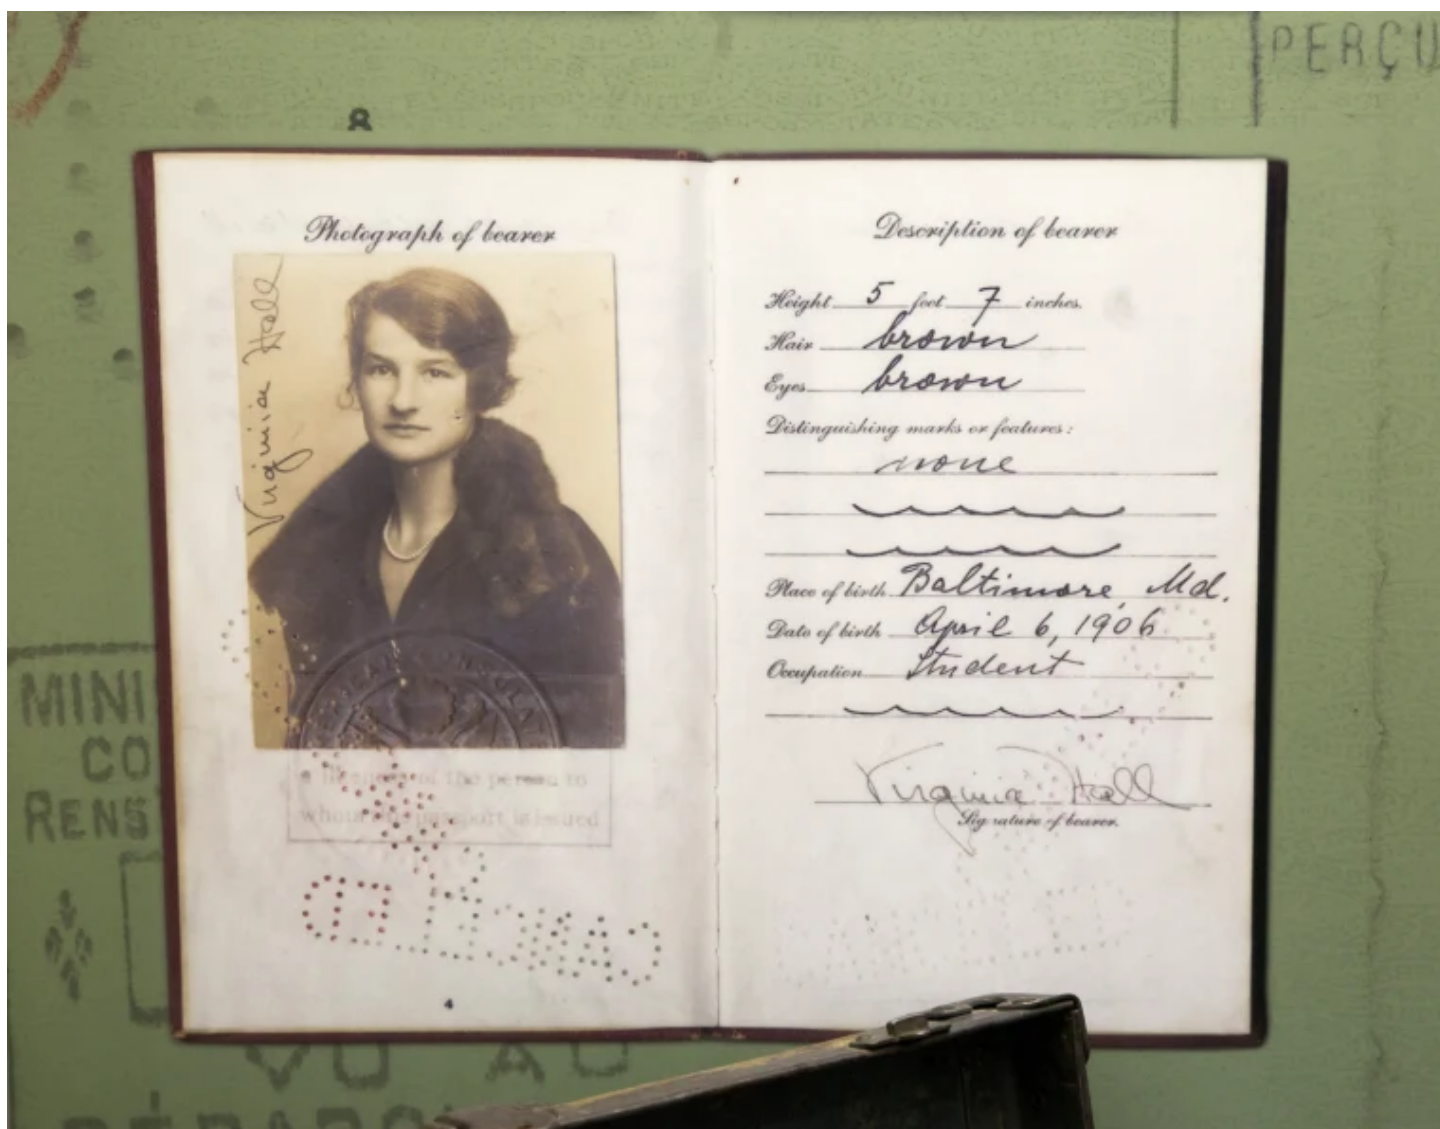 PERÇU
8
Photograph of bearer
Virginia Hall
a likeness of the person to
whom this passport is issued
CANCELLED
4
Description of bearer
Height 5 feet 7 inches.
Hair brown
Eyes brown
Distinguishing marks or features:
none
Place of birth Baltimore, Md.
Date of birth April 6, 1906
Occupation Student
Virginia Hall
Signature of bearer.
MINI
CO
RENS
VU AU